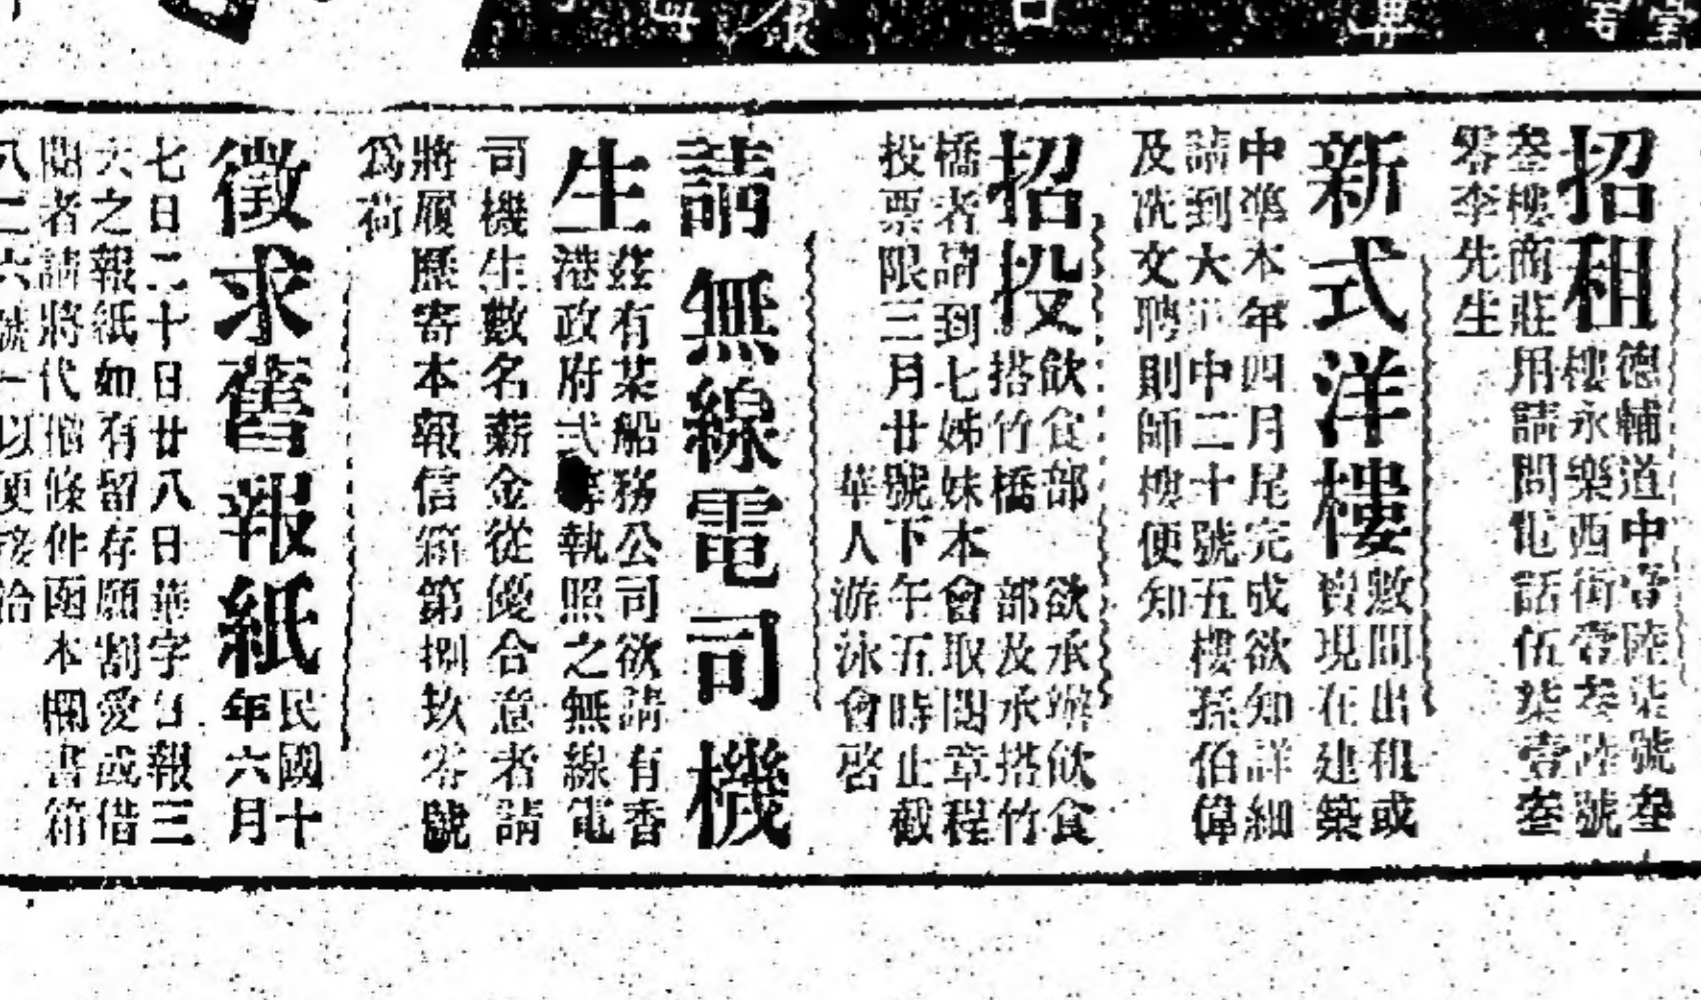 招租
德輔道中帝陸柒號叁
樓永樂西街零叁陸號
叁樓商莊用請問電話伍柒壹叁
零李先生
新式洋樓
數間出租或
賣現在建築
中準本年四月尾完成欲知詳細
請到大中二十號五樓孫伯偉
及冼文聘則師樓便知
招投
飲食部 欲承辦飲食
搭竹橋 部及承搭竹
橋者請到七姊妹本會取閱章程
投票限三月廿號下午五時止截
華人游泳會啓
請無線電司機
生
茲有某船務公司欲請有香
港政府式等執照之無線電
司機生數名薪金從優合意者請
將履歷寄本報信箱第捌玖零號
爲荷
徵求舊報紙
民國十
年六月
七日二十日廿八日華字日報三
天之報紙如有留存願割愛或借
閱者請將代價條件函本欄書箱
八二六號一以便接洽